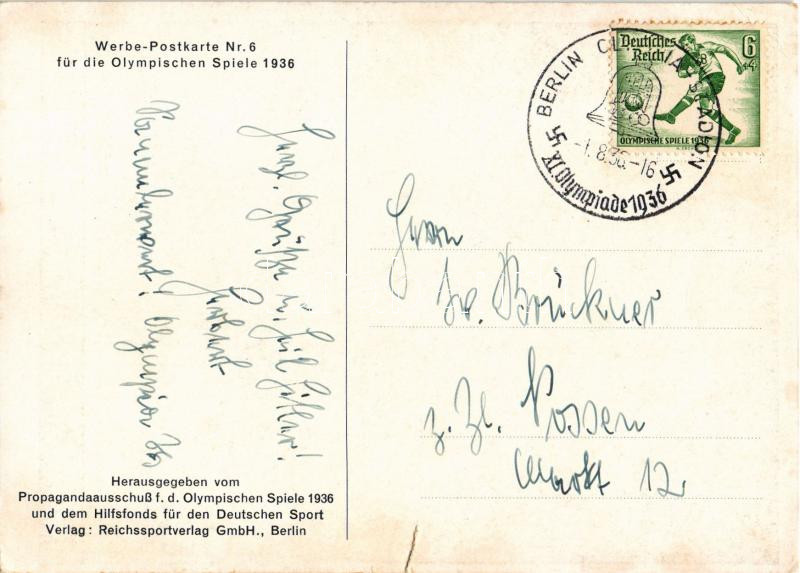 Werbe-Postkarte Nr. 6
für die Olympischen Spiele 1936
Herzl. Grüße u. Heil Hitler!
Herbert
Olympia 36
Herausgegeben vom
Propagandaausschuß f. d. Olympischen Spiele 1936
und dem Hilfsfonds für den Deutschen Sport
Verlag: Reichssportverlag GmbH., Berlin
BERLIN OLYMPIA-STADION
-1.8.36.-16
XI. Olympiade 1936
Deutsches
Reich
6
+4
OLYMPISCHE SPIELE 1936
Herrn
Dr. Brückner
z. Zt. Possen
Markt 12